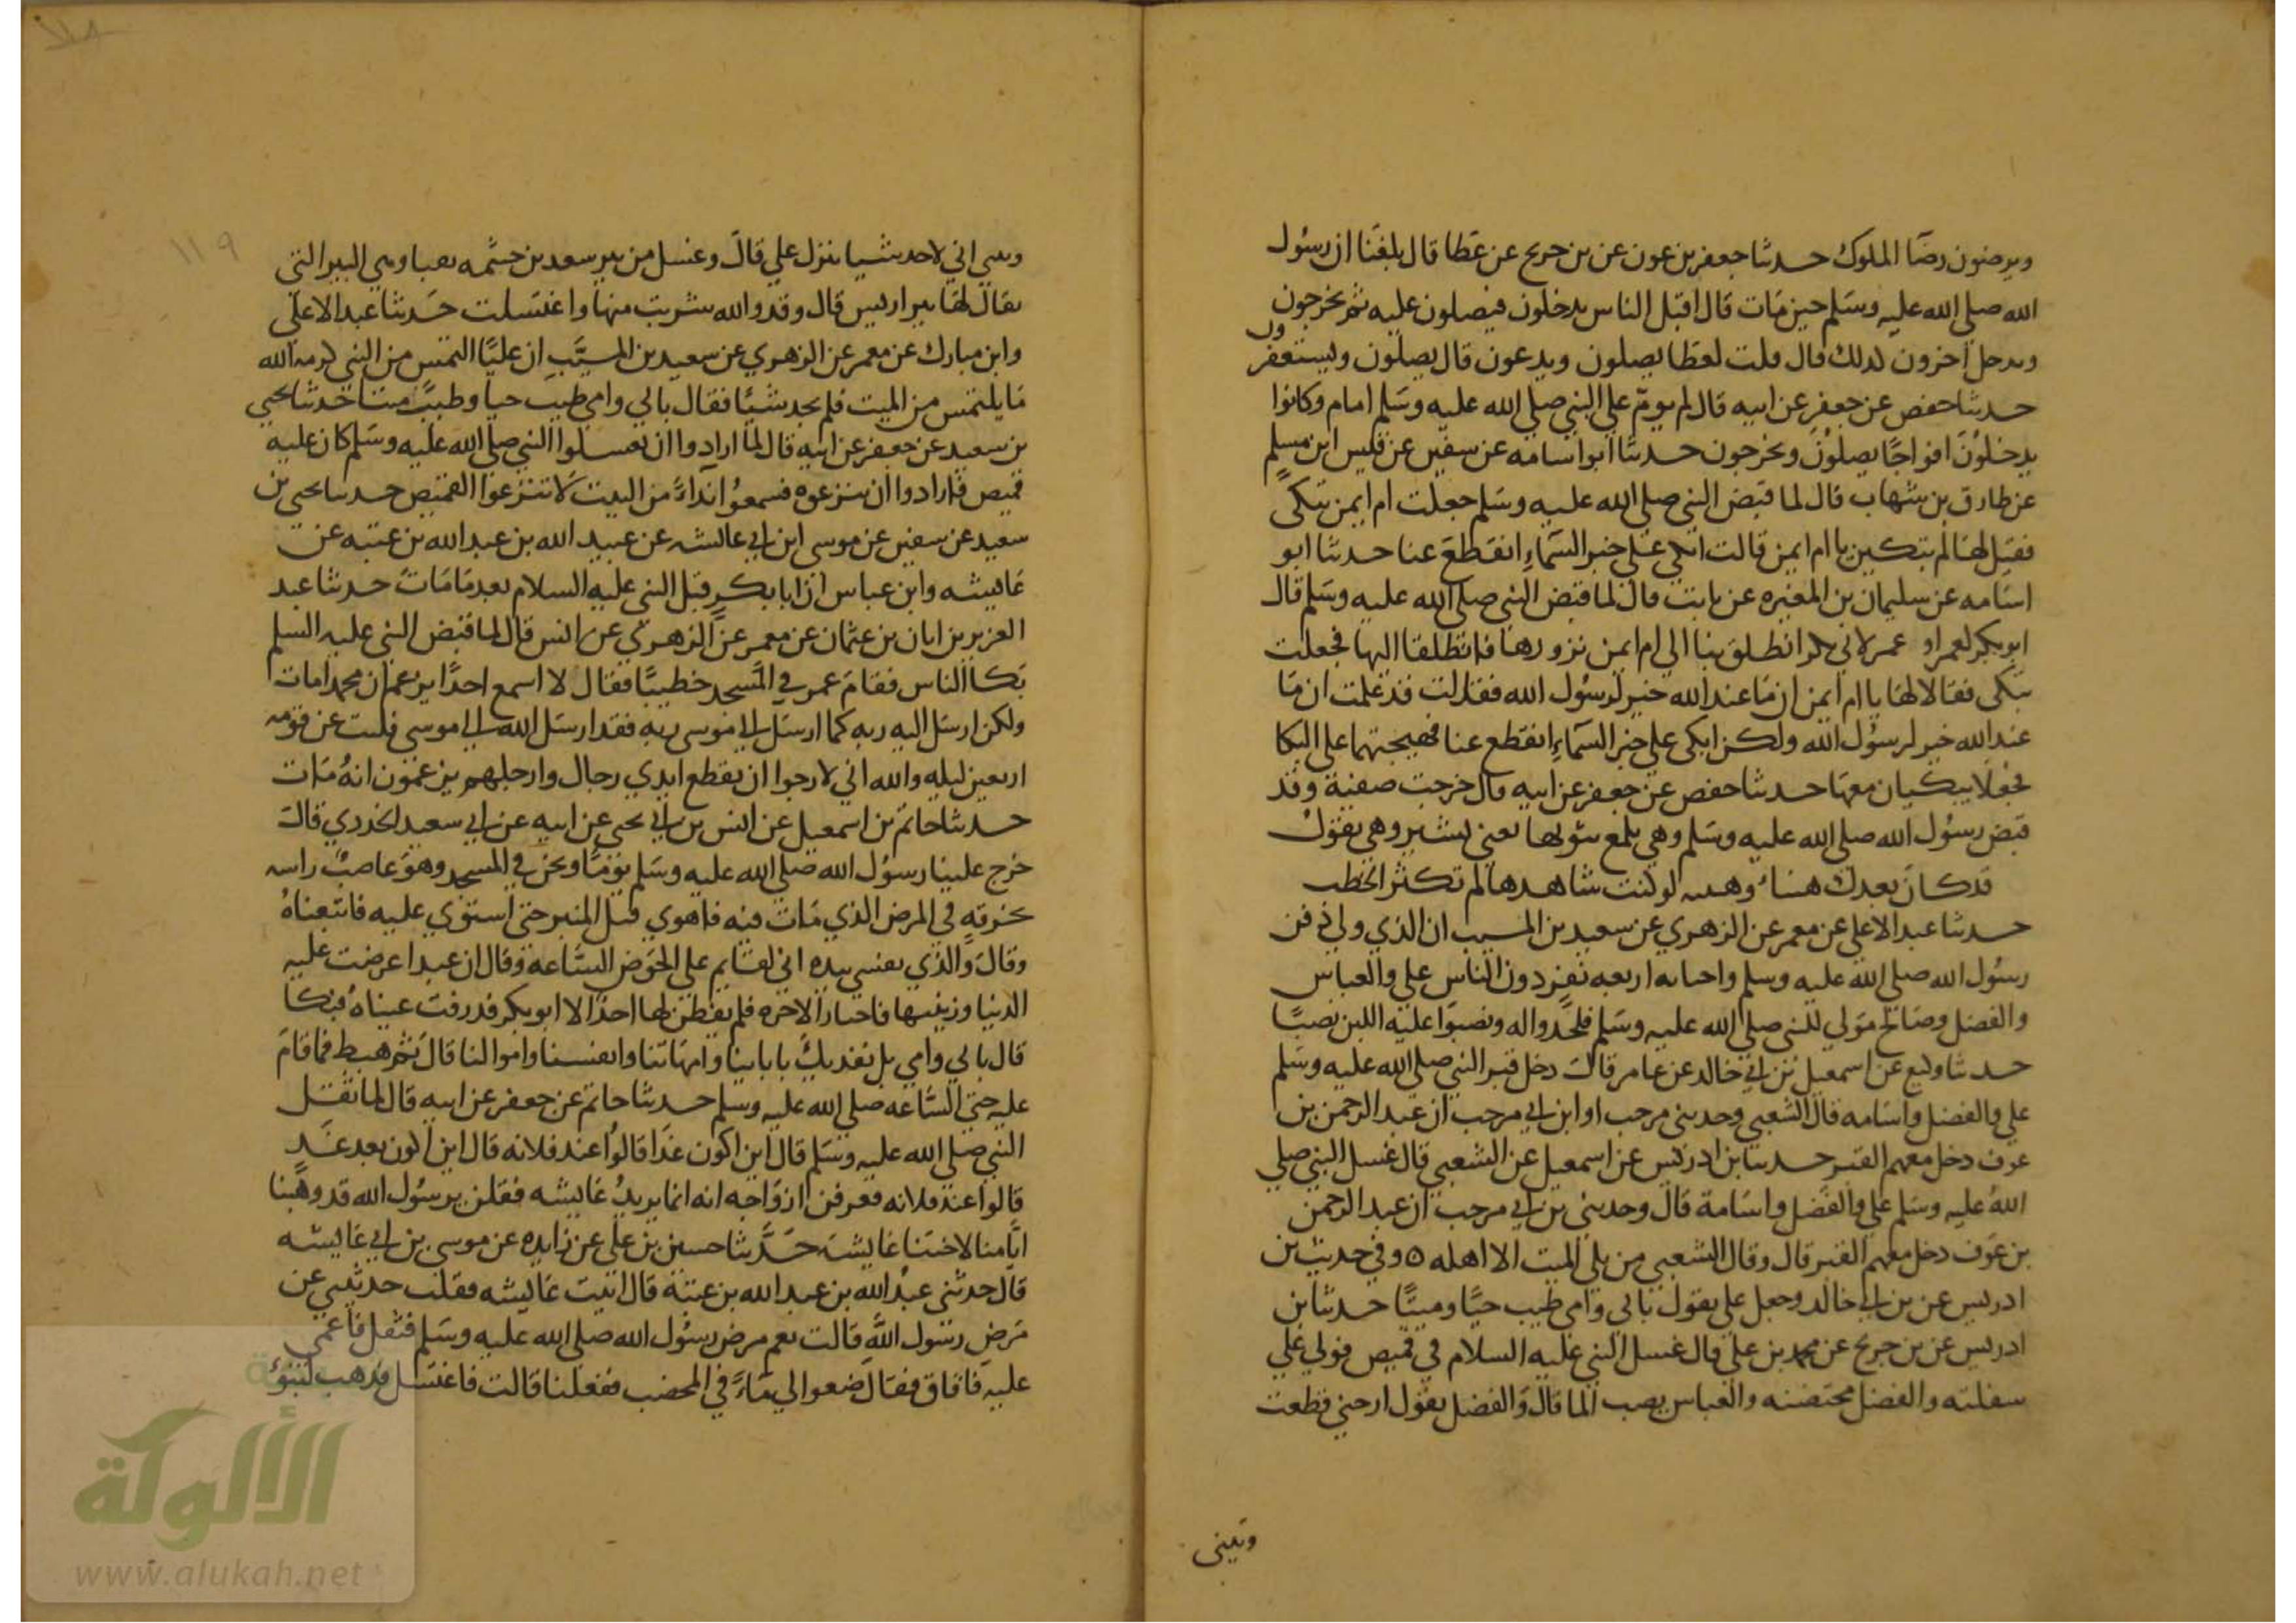 ويرضون رضا الملوك حدثنا جعفر بن عون عن بن جريج عن عطا قال بلغنا ان رسول
الله صلى الله عليه وسلم حين مات قال اقبل الناس يدخلون فيصلون عليه ثم يخرجون
ويدخل اخرون كذلك قال قلت لعطا يصلون ويدعون قال يصلون ويستغفرون
حدثنا حفص عن جعفر عن ابيه قال لم يوم على النبي صلى الله عليه وسلم امام وكانوا
يدخلون افواجا يصلون ويخرجون حدثنا ابو اسامه عن سفين عن قيس ابن مسلم
عن طارق بن شهاب قال لما قبض النبي صلى الله عليه وسلم جعلت ام ايمن تبكي
فقيل لها لم تبكين يا ام ايمن قالت ابكي على خبر السماء انقطع عنا حدثنا ابو
اسامه عن سليمان بن المغيره عن ثابت قال لما قبض النبي صلى الله عليه وسلم قال
ابو بكر لعمر او عمر لابي بكر انطلق بنا الى ام ايمن نزورها فانطلقا اليها فجعلت
تبكي فقالا لها يا ام ايمن ان ما عند الله خير لرسول الله فقالت قد علمت ان ما
عند الله خير لرسول الله ولكن ابكي على خبر السماء انقطع عنا فهيجتهما على البكا
فجعلا يبكيان معها حدثنا حفص عن جعفر عن ابيه قال خرجت صفية وقد
قبض رسول الله صلى الله عليه وسلم وهي تلمع بثوبها يعني تشير وهي تقول
قد كان بعدك هنباء وهنبـه لو كنت شاهدها لم تكثر الخطب
حدثنا عبد الاعلى عن معمر عن الزهري عن سعيد بن المسيب ان الذي ولي دفن
رسول الله صلى الله عليه وسلم واجنابه اربعه نفر دون الناس علي والعباس
والفضل وصالح مولى النبي صلى الله عليه وسلم فلحدوا له ونصبوا عليه اللبن نصبا
حدثنا وكيع عن اسمعيل بن ابي خالد عن عامر قال دخل قبر النبي صلى الله عليه وسلم
علي والفضل واسامه قال الشعبي وحدثني مرحب او ابن ابي مرحب ان عبد الرحمن بن
عوف دخل معهم القبر حدثنا بن ادريس عن اسمعيل عن الشعبي قال غسل النبي صلى
الله عليه وسلم علي والفضل واسامة قال وحدثني بن ابي مرحب ان عبد الرحمن
بن عوف دخل معهم القبر قال وقال الشعبي من يلي الميت الا اهله ه وفي حديث بن
ادريس عن بن ابي خالد وجعل علي يقول بابي وامي طيب حيا وميتا حدثنا بن
ادريس عن بن جريج عن محمد بن علي قال غسل النبي عليه السلام في قميص فولي علي
سفلته والفضل محتضنه والعباس يصب الما قال والفضل يقول ارحني قطعت
وتيني
١١٩
وتيني اني لاجد شيا ينزل علي قال وغسل من بير سعد بن خيثمه بقبا وهي البير التي
يقال لها بير اريس قال وقد والله شربت منها واغتسلت حدثنا عبد الاعلى
وابن مبارك عن معمر عن الزهري عن سعيد بن المسيب ان عليا التمس من النبي
ما يلتمس من الميت فلم يجد شيئا فقال بابي وامي طيب حيا وطيب ميتا حدثنا يحيى
بن سعيد عن جعفر عن ابيه قال لما ارادوا ان يغسلوا النبي صلى الله عليه وسلم كان عليه
قميص فارادوا ان ينزعوه فسمعوا نداء من البيت لا تنزعوا القميص حدثنا يحيى بن
سعيد عن سفين عن موسى ابن ابي عائشه عن عبيد الله بن عبد الله بن عتبه عن
عائيشه وابن عباس ان ابا بكر قبل النبي عليه السلام بعد ما مات حدثنا عبد
العزيز بن ابان بن عثمان عن معمر عن الزهري عن انس قال لما قبض النبي عليه السلم
بكا الناس فقام عمر في المسجد خطيبا فقال لا اسمع احدا يزعم ان محمدا مات
ولكن ارسل اليه ربه كما ارسل الى موسى ربه فقد ارسل الله الى موسى فلبث عن قومه
اربعين ليله والله اني لارجوا ان يقطع ايدي رجال وارجلهم يزعمون انه مات
حدثنا حاتم بن اسمعيل عن انس بن ابي يحيى عن ابيه عن ابي سعيد الخدري قال
خرج علينا رسول الله صلى الله عليه وسلم يوما ونحن في المسجد وهو عاصب راسه
بخرقه في المرض الذي مات فيه فاهوى قبل المنبر حتى استوى عليه فاتبعناه
وقال والذي نفسي بيده اني لقايم على الحوض الساعه وقال ان عبدا عرضت عليه
الدنيا وزينتها فاختار الاخره فلم يفطن لها احدا الا ابو بكر فذرفت عيناه فبكا
قال بابي وامي بل نفديك بابائنا وامهاتنا وانفسنا واموالنا قال ثم هبط فما قام
عليه حتى الساعه صلى الله عليه وسلم حدثنا حاتم عن جعفر عن ابيه قال لما ثقل
النبي صلى الله عليه وسلم قال اين اكون غدا قالوا عند فلانه قال اين اكون بعد غد
قالوا عند فلانه فعرفن ازواجه انه انما يريد عائيشه فقلن يرسول الله قد وهبنا
ايامنا لاختنا عايشه حدثنا حسين بن علي عن زايده عن موسى بن ابي عاييشه
قال حدثني عبد الله بن عبد الله بن عتبة قال اتيت عائيشه فقلت حدثيني عن
مرض رسول الله قالت نعم مرض رسول الله صلى الله عليه وسلم فثقل فاغمي
عليه فافاق فقال ضعوا لي ماء في المخضب ففعلنا قالت فاغتسل فذهب لينوء
الألوكة
www.alukah.net